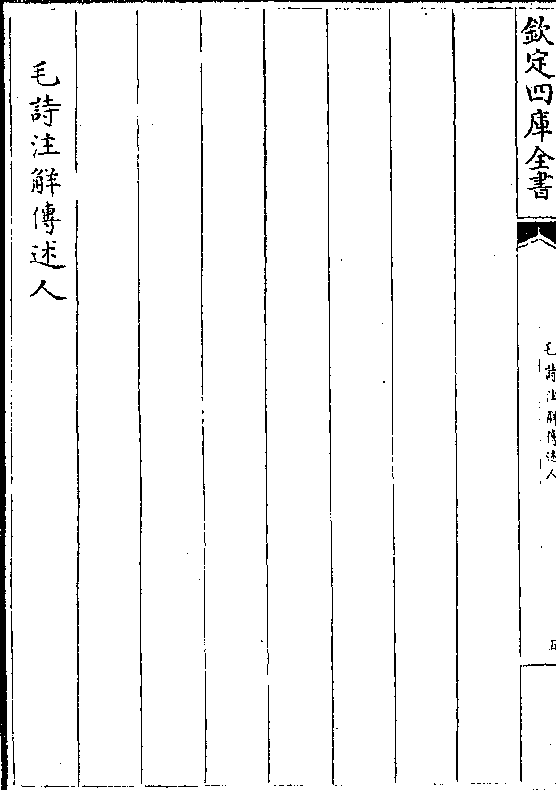 欽定四庫全書
毛詩注解傳述人
五
毛詩注解傳述人